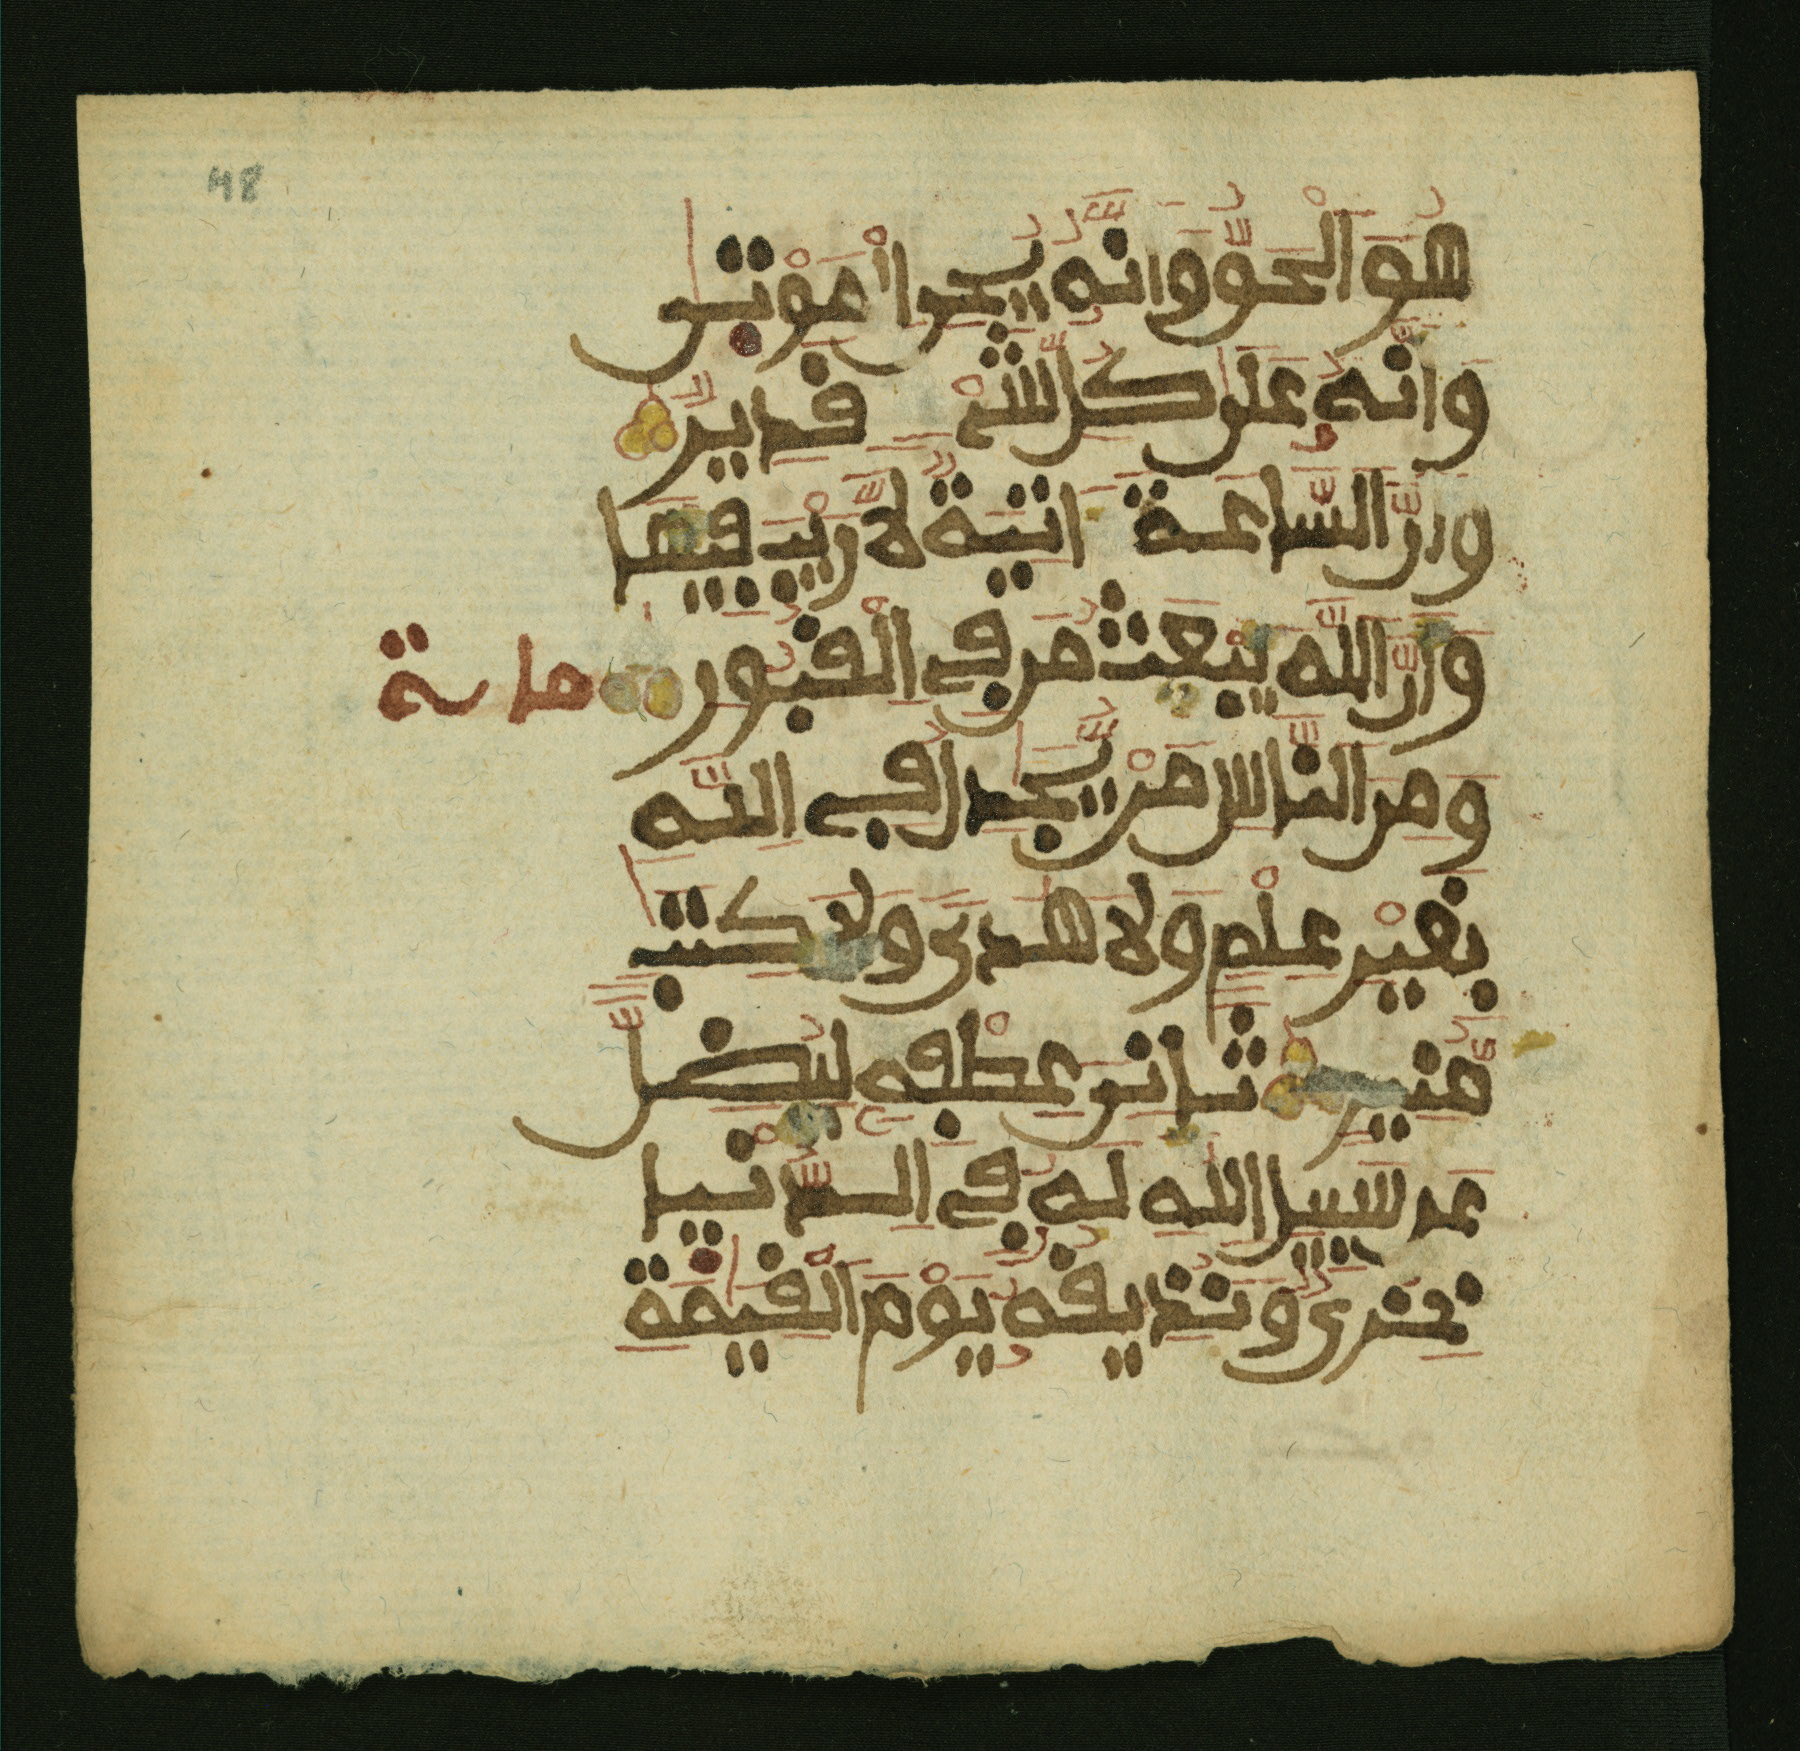 48
هُوَ الْحَقُّ وَأَنَّهُ يُحْىِ الْمَوْتٜىٰ
وَأَنَّهُ عَلَىٰ كُلِّ شَےْءٍ قَدِيرٌ
وَأَنَّ السَّاعَةَ ءَاتِيَةٌ لَّا رَيْبَ فِيهَا
وَأَنَّ اللَّهَ يَبْعَثُ مَن فِے الْقُبُورِ مائة
وَمِنَ النَّاسِ مَنْ يُّجَٰدِلُ فِے اللَّهِ
بِغَيْرِ عِلْمٍ وَلَا هُدىً وَلَا كِتَٰبٍ
مُّنِيرٍ ثَانِىَ عِطْفِهِ لِيُضِلَّ
عَن سَبِيلِ اللَّهِ لَهُ فِے الدُّنْيَا
خِزْىٌ وَنُذِيقُهُ يَوْمَ الْقِيَٰمَةِ